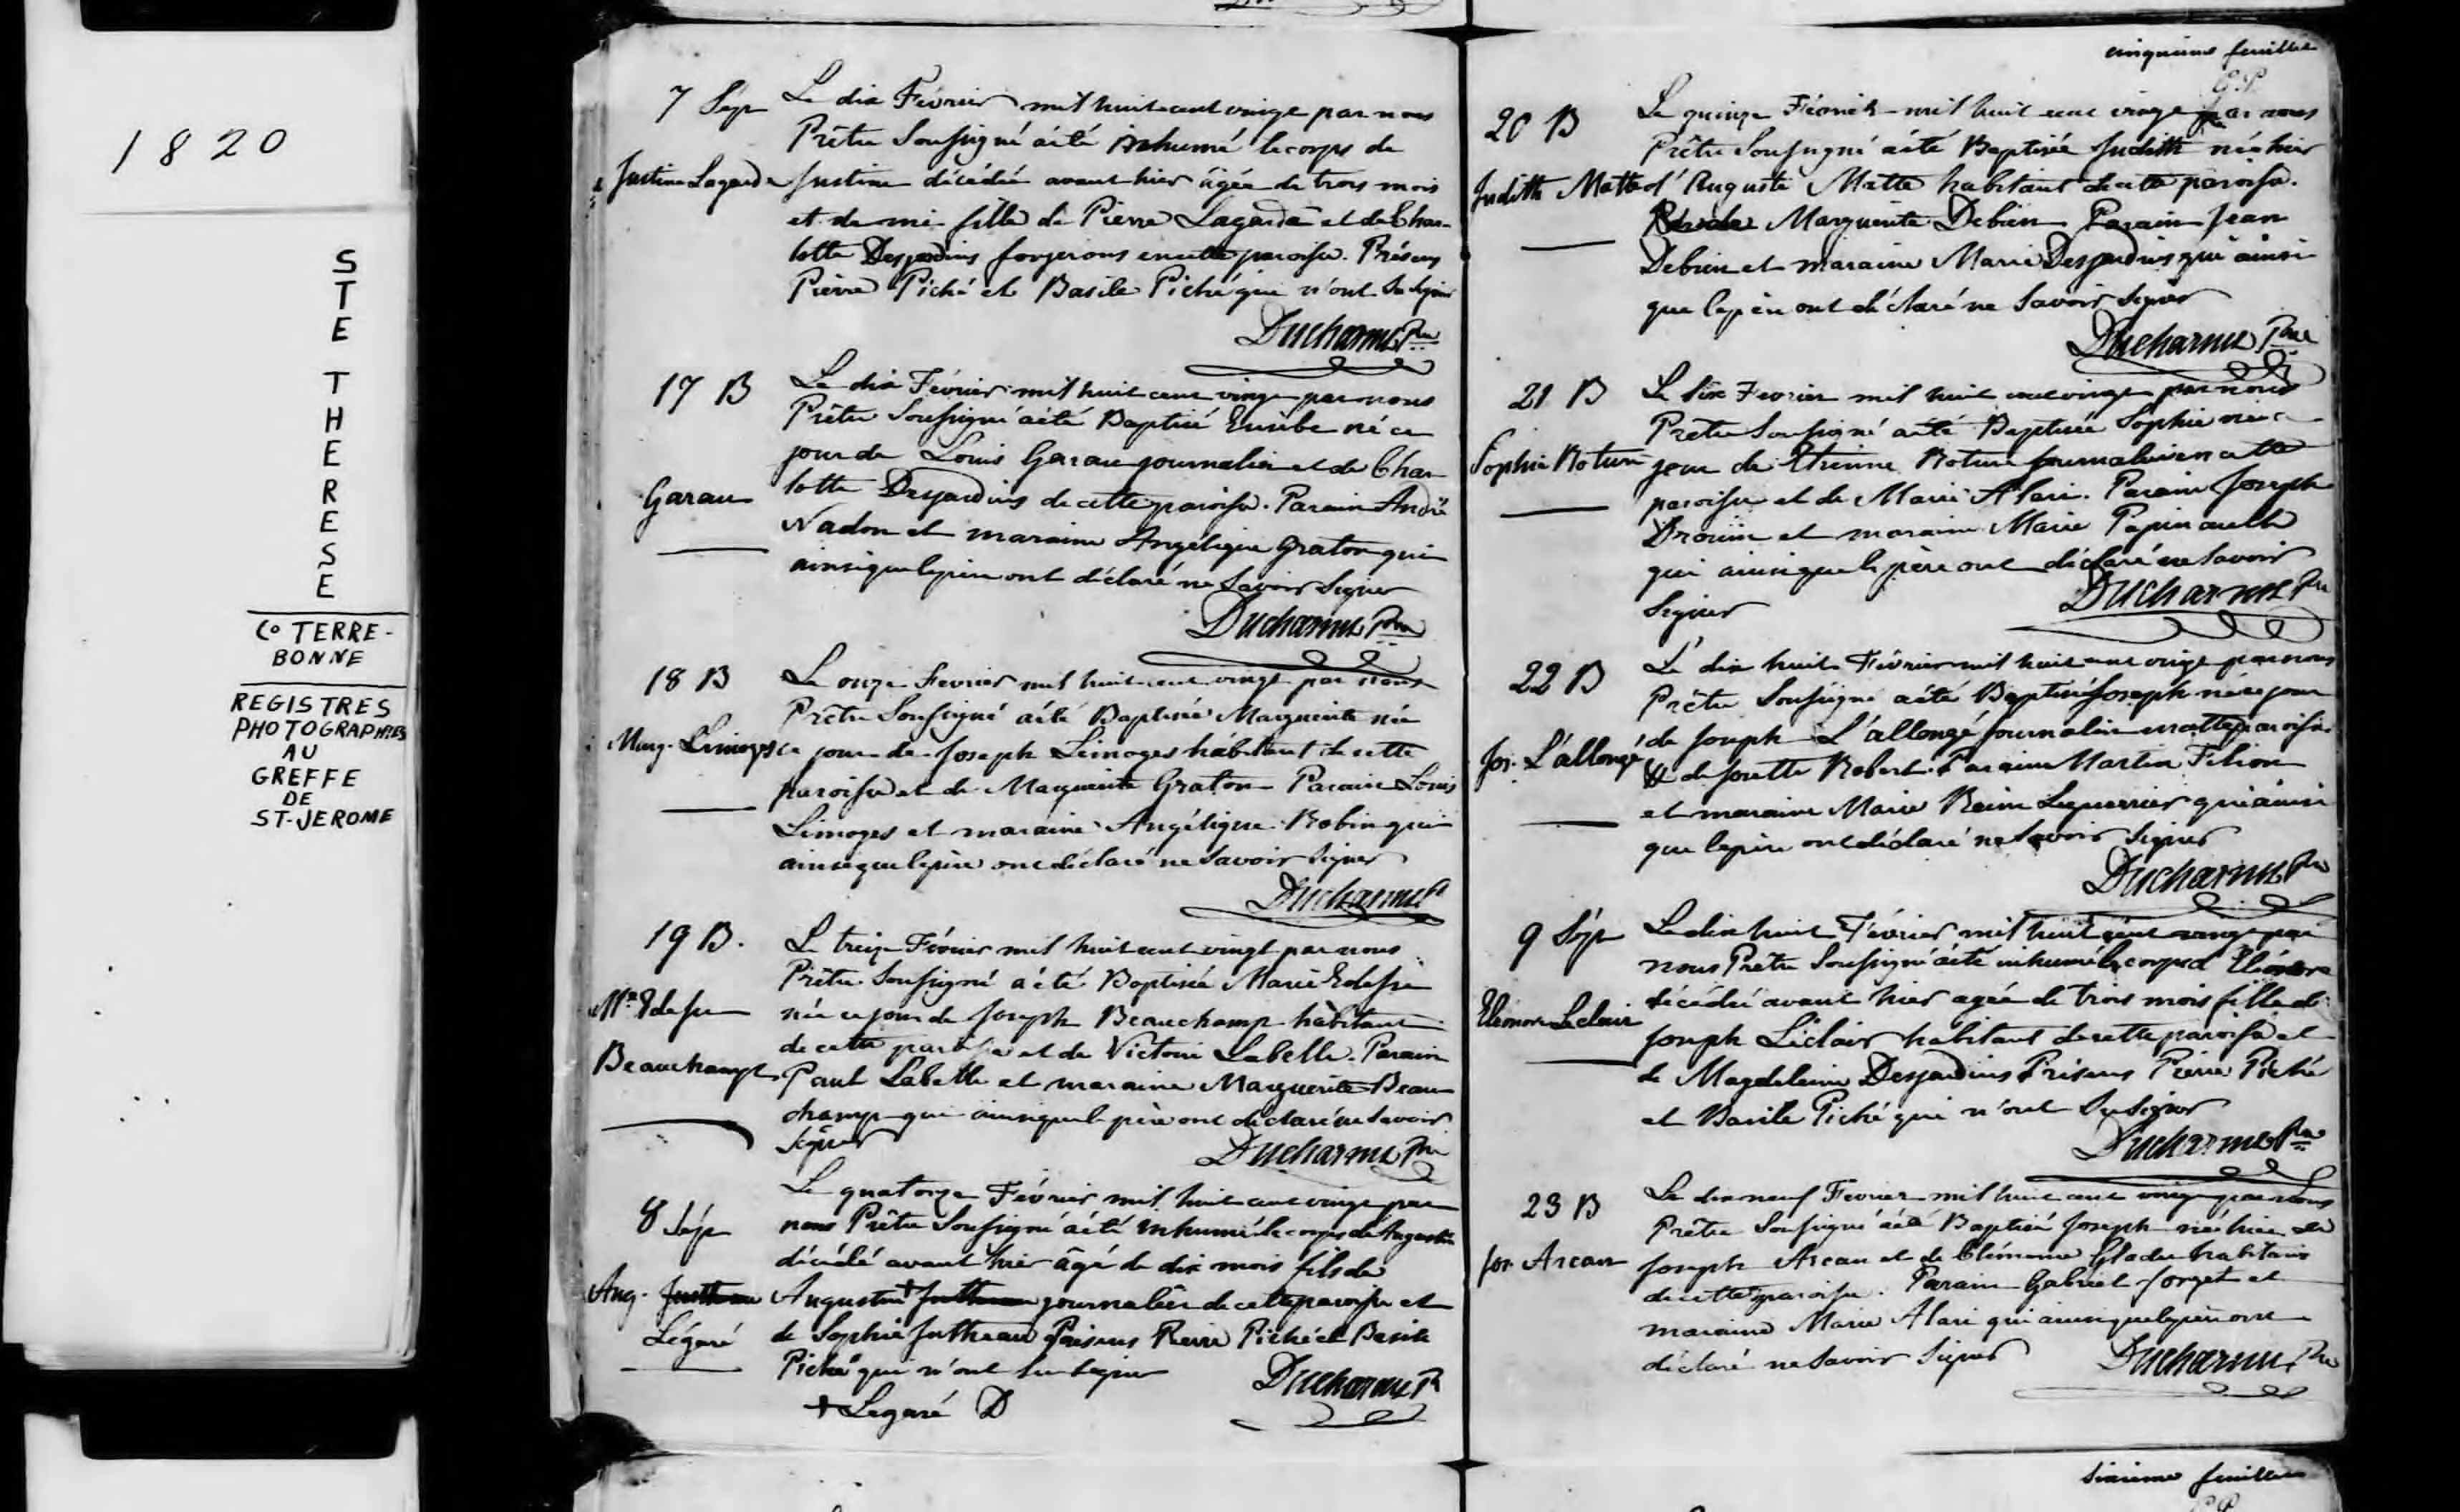 1820
STE THERESE
Co TERRE-
BONNE
REGISTRES
PHOTOGRAPHIES
AU
GREFFE
DE
ST-JEROME
7 Sép
Justine Lagarde
Le dix Février mil huit cent vingt par nous
Prêtre Soussigné a été inhumé le corps de
Justine décédée avant hier âgée de trois mois
et demi fille de Pierre Lagarde et de Char-
lotte Desjardins forgerons en cette paroisse. Présens
Pierre Piché et Basile Piché qui n'ont su signer
Ducharme Ptre
17 B
Garau
Le dix Février mil huit cent vingt par nous
Prêtre Soussigné a été Baptisé Eusèbe né ce
jour de Louis Garau journalier et de Char
lotte Desjardins de cette paroisse. Parain André
Nadon et maraine Angélique Graton qui
ainsi que le père ont déclaré ne Savoir Signer
Ducharme Ptre
18 B
Marg. Limoges
Le onze Fevrier mil huit cent vingt par nous
Prêtre Soussigné a été Baptisée Marguerite née
ce jour de Joseph Limoges habitant de cette
paroisse et de Marguerite Graton Parain Louis
Limoges et maraine Angélique Robin qui
ainsi que le père ont déclaré ne Savoir signer
Ducharme P
19 B.
Mie Edesse
Beauchamp
Le treize Février mil huit cent vingt par nous
Prêtre Soussigné a été Baptisée Marie
née ce jour de Joseph Beauchamp habitant
de cette paroisse et de Victoire Labelle. Parain
Paul Labelle et maraine Marguerite Beau
champ qui ainsi que le père ont déclaré ne savoir
signer
Ducharme Ptre
8 Sép
Aug.
Légaré
Le quatorze Février mil huit cent vingt par
nous Prêtre Soussigné a été inhumé le corps de Augustin
décédé avant hier âgé de dix mois fils de
Augustin + journalier de cette paroisse et
de Sophie Jutheau Présens Pierre Piché et Basile
Piché qui n'ont su signer
Ducharme P
+ Legaré D
cinquieme feuillet
20 B
Judith Matte
Le quinze Février mil huit cent vingt par nous
Prêtre Soussigné a été Baptisée Judith née hier
d'Auguste Matte habitant de cette paroisse.
Marguerite Debien Parain Jean
Debien et maraine Marie Desjardins qui ainsi
que le père ont déclaré ne Savoir signer
Ducharme Ptre
21 B
Sophie Roture
Le Fevrier mil huit cent vingt par nous
Prêtre Soussigné a été Baptisée Sophie née ce
jour de Etienne Roture journalier en cette
paroisse et de Marie Alari. Parain Joseph
Drouin et maraine Marie Papinault
qui ainsi que le père ont déclaré ne savoir
Signer
Ducharme Ptre
22 B
Jos. L'allongé
Le dix huit Février mil huit cent vingt par nous
Prêtre Soussigné a été Baptisé Joseph né ce jour
de Joseph L'allongé journalier en cette paroisse
& de Josette Robert. Parain Martin Filion
et maraine Marie Reine Leguerrier qui ainsi
que le père ont déclaré ne Savoir Signer
Ducharme Ptre
9 Sép
Eléonore Leclair
Le dix huit Février mil huit cent vingt par
nous Prêtre Soussigné a été inhumé le corps d'Eléonore
décédée avant hier agée de trois mois fille de
Joseph Léclair habitant de cette paroisse et
de Magdeleine Desjardins Présens Pierre Piché
et Basile Piché qui n'ont Su Signer
Ducharme Ptre
23 B
Jos. Arcan
Le dix neuf Fevrier mil huit cent vingt par nous
Prêtre Soussigné a été Baptisé Joseph né hier de
Joseph Arcan et de Clémence Gladu habitans
de cette paroisse. Parain Gabriel Forget et
maraine Marie Alari qui ainsi que le père ont
déclaré ne Savoir Signer
Ducharme Ptre
sixieme feuillet